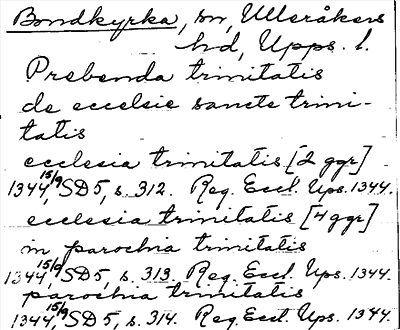 Bondkyrka, sn, Ulleråkers
hd, Upps. l.
Prebenda trinitatis
de eccelsie sancte trini-
tatis
ecclesia trinitatis [2 ggr]
1344 15/9, SD 5, s. 312. Reg. Eccl. Ups. 1344.
ecclesia trinitatis [4 ggr]
in parochia trinitatis
1344 15/9, SD 5, s. 313. Reg. Eccl. Ups. 1344.
parochia trinitatis
1344 15/9, SD 5, s. 314. Reg. Eccl. Ups. 1344.